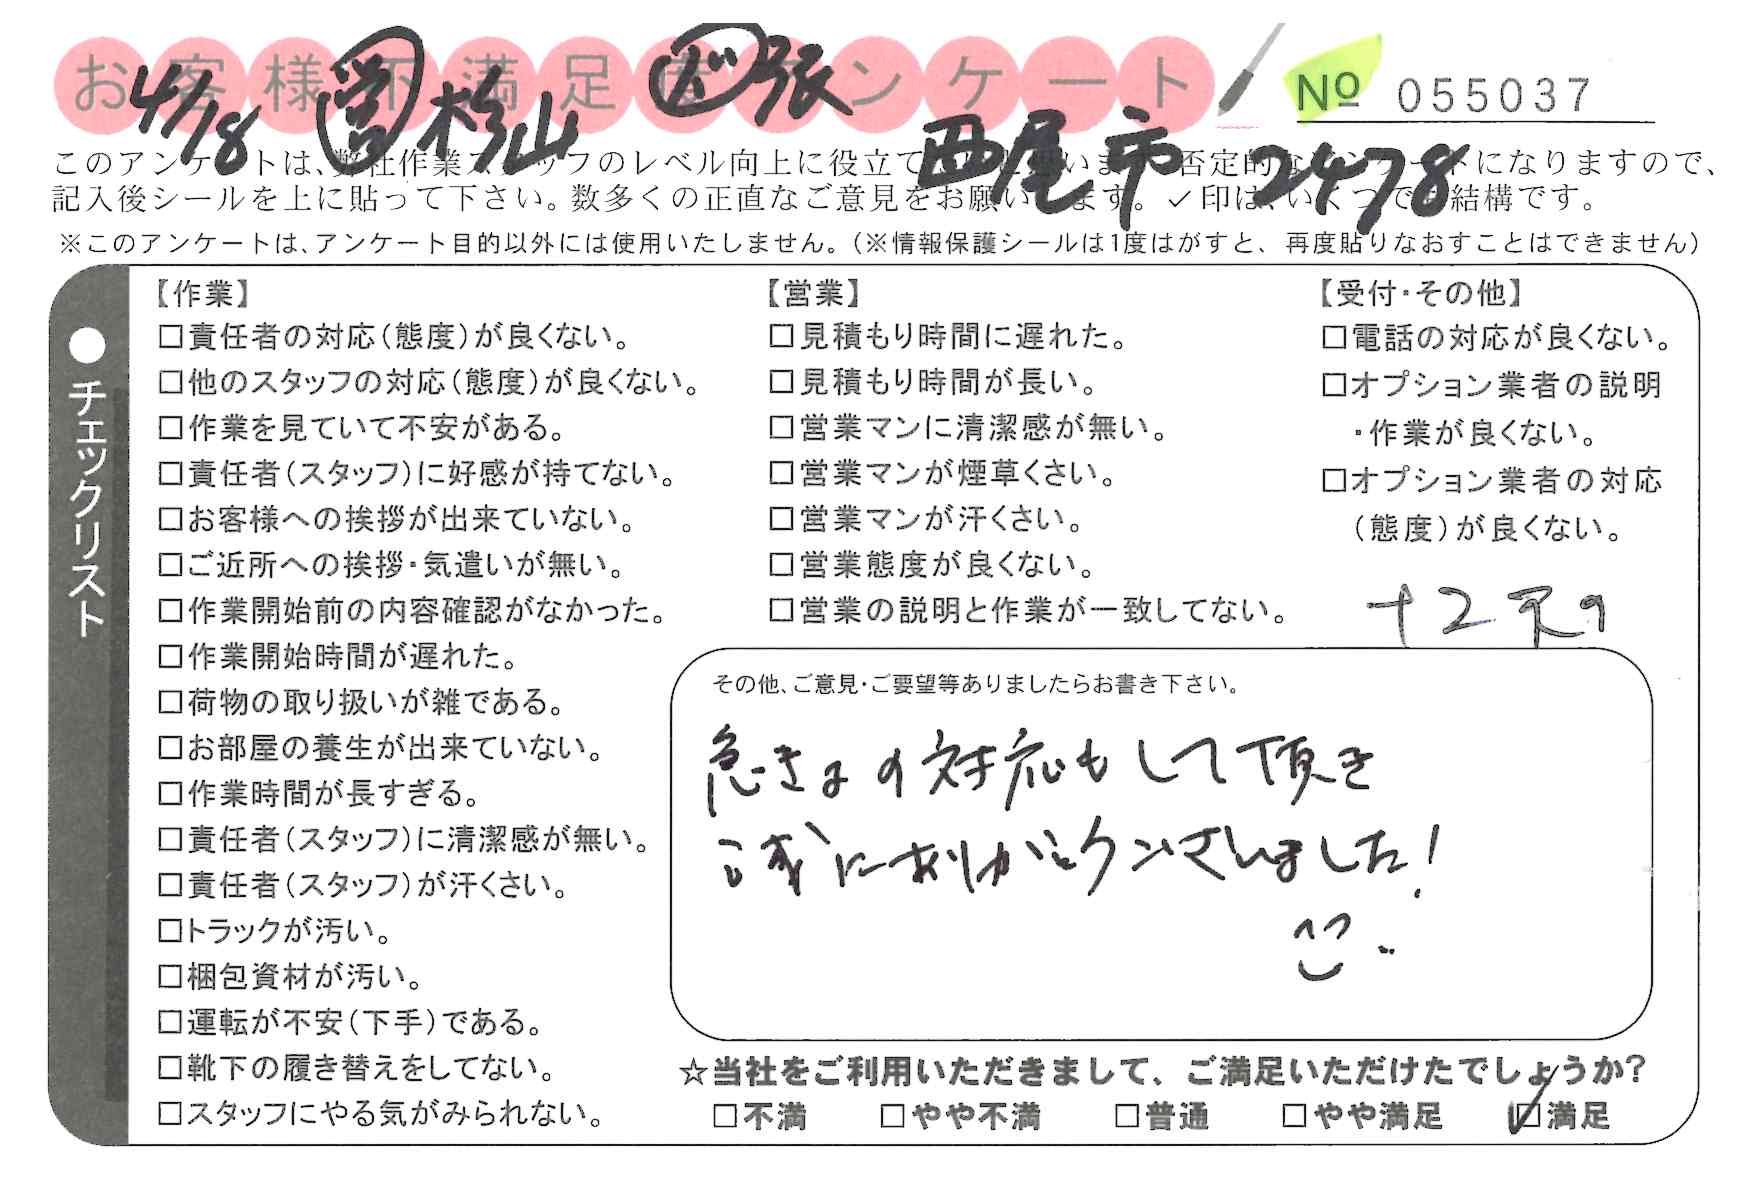 お客様不満足度アンケート
4/18 杉山 張
№ 055037
西尾市 2478
このアンケートは、弊社作業スタッフのレベル向上に役立て 思いま 否定的なアンケートになりますので、
記入後シールを上に貼って下さい。数多くの正直なご意見をお願い ます。✓印は、いくつでも結構です。
※このアンケートは、アンケート目的以外には使用いたしません。(※情報保護シールは1度はがすと、再度貼りなおすことはできません)
●チェックリスト
【作業】
□責任者の対応(態度)が良くない。
□他のスタッフの対応(態度)が良くない。
□作業を見ていて不安がある。
□責任者(スタッフ)に好感が持てない。
□お客様への挨拶が出来ていない。
□ご近所への挨拶・気遣いが無い。
□作業開始前の内容確認がなかった。
□作業開始時間が遅れた。
□荷物の取り扱いが雑である。
□お部屋の養生が出来ていない。
□作業時間が長すぎる。
□責任者(スタッフ)に清潔感が無い。
□責任者(スタッフ)が汗くさい。
□トラックが汚い。
□梱包資材が汚い。
□運転が不安(下手)である。
□靴下の履き替えをしてない。
□スタッフにやる気がみられない。
【営業】
□見積もり時間に遅れた。
□見積もり時間が長い。
□営業マンに清潔感が無い。
□営業マンが煙草くさい。
□営業マンが汗くさい。
□営業態度が良くない。
□営業の説明と作業が一致してない。
【受付・その他】
□電話の対応が良くない。
□オプション業者の説明
・作業が良くない。
□オプション業者の対応
(態度)が良くない。
その他、ご意見・ご要望等ありましたらお書き下さい。
急きょの対応もして頂き
誠にありがとうございました!
☆当社をご利用いただきまして、ご満足いただけたでしょうか?
□不満 □やや不満 □普通 □やや満足 ☑満足